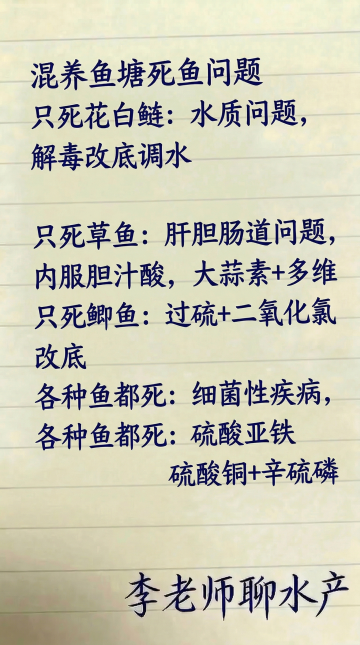 混养鱼塘死鱼问题
只死花白鲢：水质问题，
解毒改底调水
只死草鱼：肝胆肠道问题，
内服胆汁酸，大蒜素+多维
只死鲫鱼：过硫+二氧化氯
改底
各种鱼都死：细菌性疾病，
各种鱼都死：硫酸亚铁
硫酸铜+辛硫磷
李老师聊水产